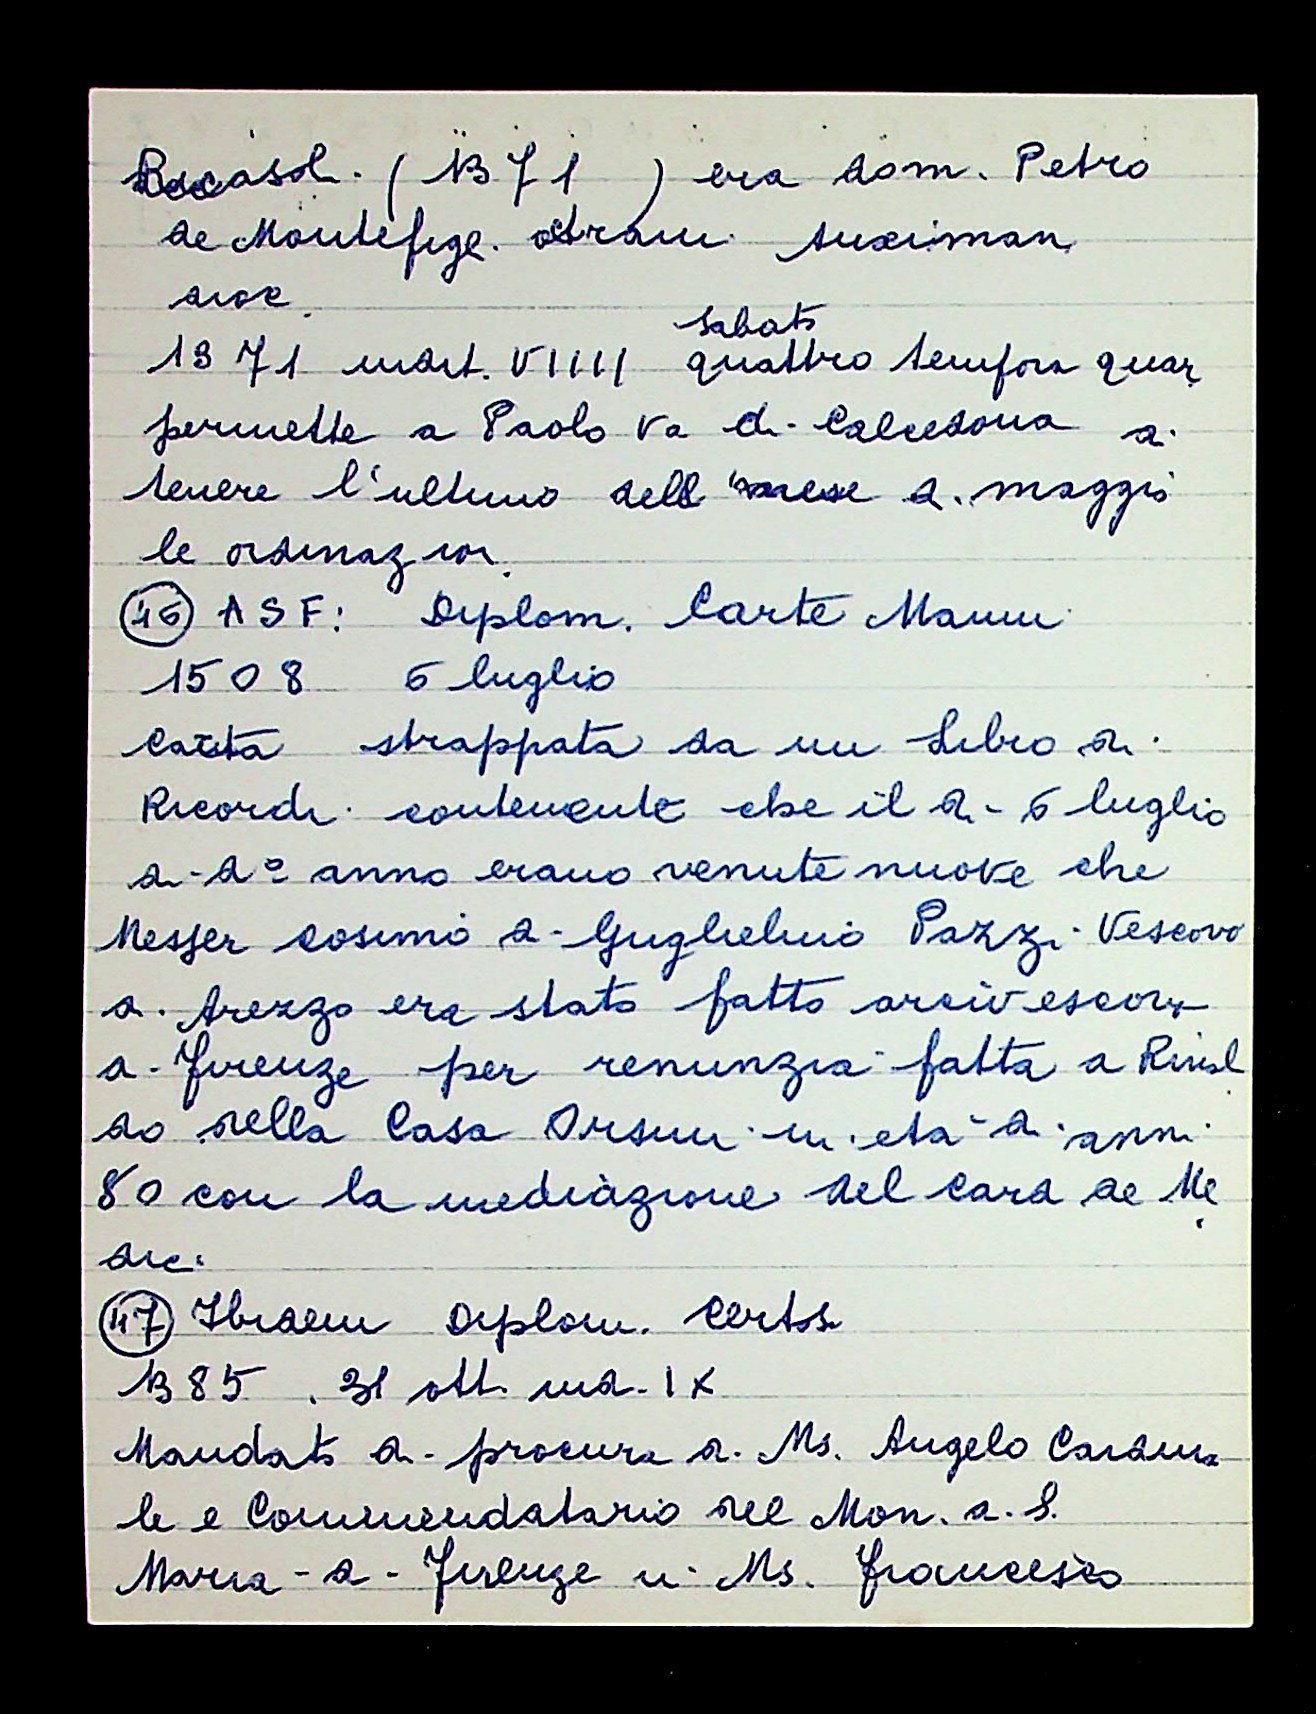 Bocasol. (1371) era dom. Petro
de Montefige. Auximan
dioc.
sabato
1371 indit. VIIII quattro tempora quar
permette a Paolo Va di Calcedona a
tenere l'ultimo dell mese di maggio
le ordinazion
46 ASF: Diplom. Carte Mannu
1508 6 luglio
Carta strappata da un Libro di
Ricordi contenente che il di 6 luglio
di do anno erano venute nuove che
Messer Cosimo di Guglielmo Pazzi Vescovo
di Arezzo era stato fatto arcivescov
di Firenze per renunzia fatta a Rinal
do della Casa Orsini in età di anni
80 con la mediazione del Card de Me
dici
47 Ibidem Diplom. Certos.
1385. 31 ott. ind. IX
Mandato di procura di Ms. Angelo Cardina
le e Commendatario del Mon. di S.
Maria di Firenze in Ms. Francesco